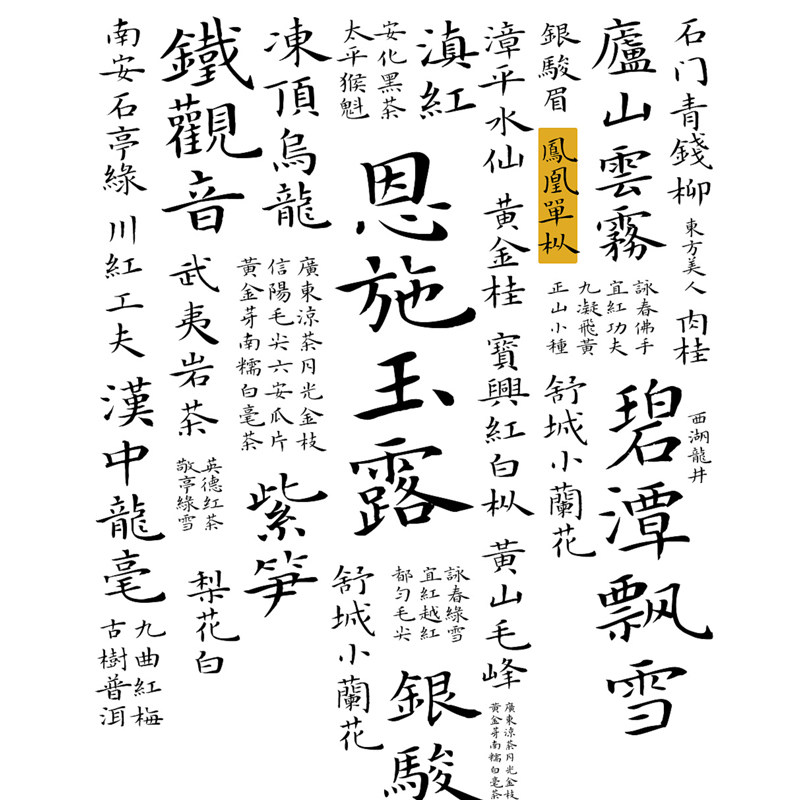 石门青錢柳
東方美人
肉桂
西湖龍井
廬山雲霧
詠春佛手
宜紅功夫
九凝飛黃
正山小種
碧潭飘雪
銀駿眉
鳳凰單枞
舒城小蘭花
漳平水仙
黃金桂
寶興紅
白枞
黃山毛峰
廣東涼茶月光金枝
黃金芽南糯白毫茶
滇紅
安化黑茶
太平猴魁
恩施玉露
詠春綠雪
宜紅越紅
都勻毛尖
銀駿
舒城小蘭花
凍頂烏龍
廣東涼茶月光金枝
信陽毛尖六安瓜片
黃金芽南糯白毫茶
紫笋
鐵觀音
武夷岩茶
英德紅茶
敬亭綠雪
梨花白
南安石亭綠
川紅工夫
漢中龍毫
九曲紅梅
古樹普洱